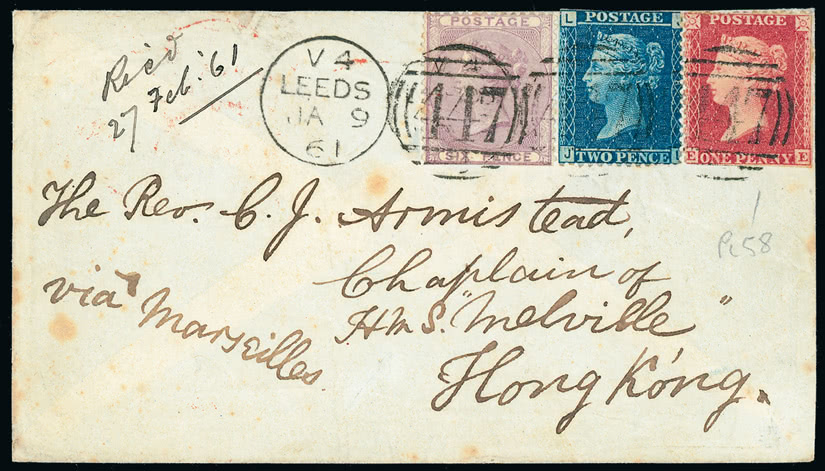 Recd
27 Feb. 61
V 4
LEEDS
JA 9
61
V 4
447
POSTAGE
SIX PENCE
POSTAGE
L
J TWO PENCE L
POSTAGE
E ONE PENNY E
447
The Rev. C. J. Armistead,
Chaplain of
H.M.S. "Melville"
Hong Kong.
viâ Marseilles
Pl 58